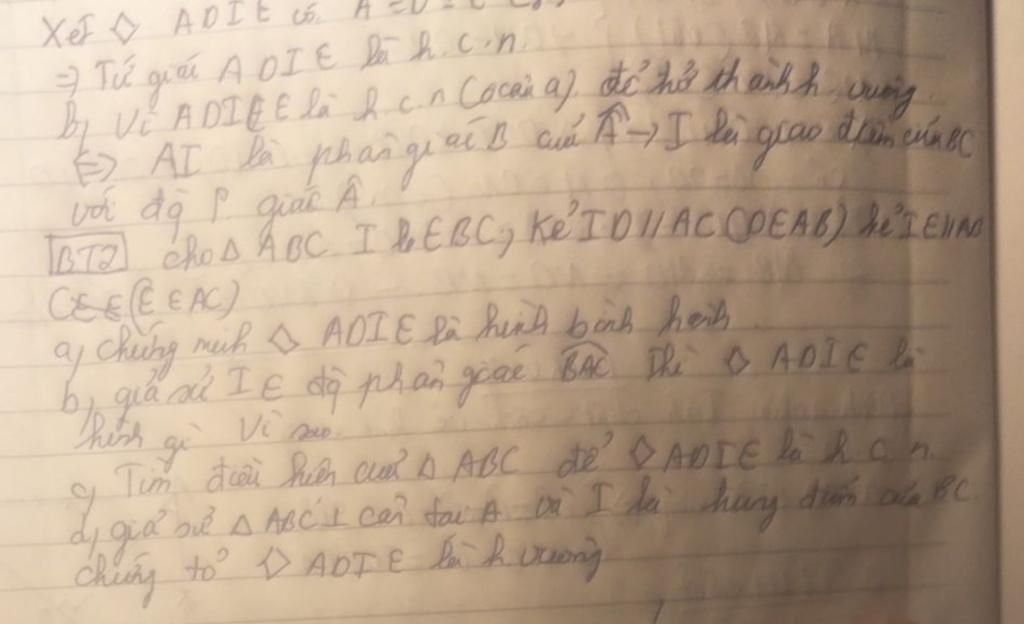 Xét ◇ ADIE có A = D = E
=) Tứ giác ADIE là h.c.n
b, Vì ADIE là h c n (ở câu a) để trở thành h vuông
(=) AI là phân giác của Â → I là giao điểm của BC
với đg p giác Â
BT2 cho Δ ABC I E BC, Kẻ ID // AC (D∈AB) kẻ IE//AB
(E ∈ AC)
a, chứng minh ◇ ADIE là hình bình hành
b, giả sử I ∈ đg phân giác BAC thì ◇ ADIE là
hình gì vì sao
c, Tìm điều kiện của Δ ABC để ◇ ADIE là h c n
d, giả sử Δ ABC ⊥ cân tại A và I là trung điểm của BC
chứng tỏ ◇ ADIE là h vuông